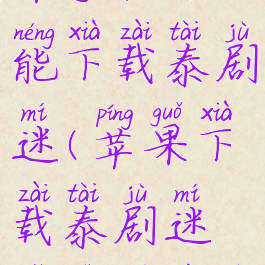 néng xià zài tài jù
能下载泰剧
mí píng guǒ xià
迷(苹果下
zài tài jù mí
载泰剧迷